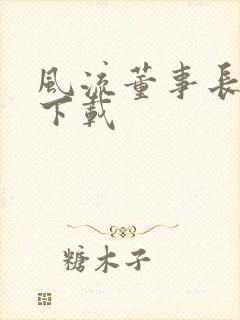 風流董事長
下載
糖木子